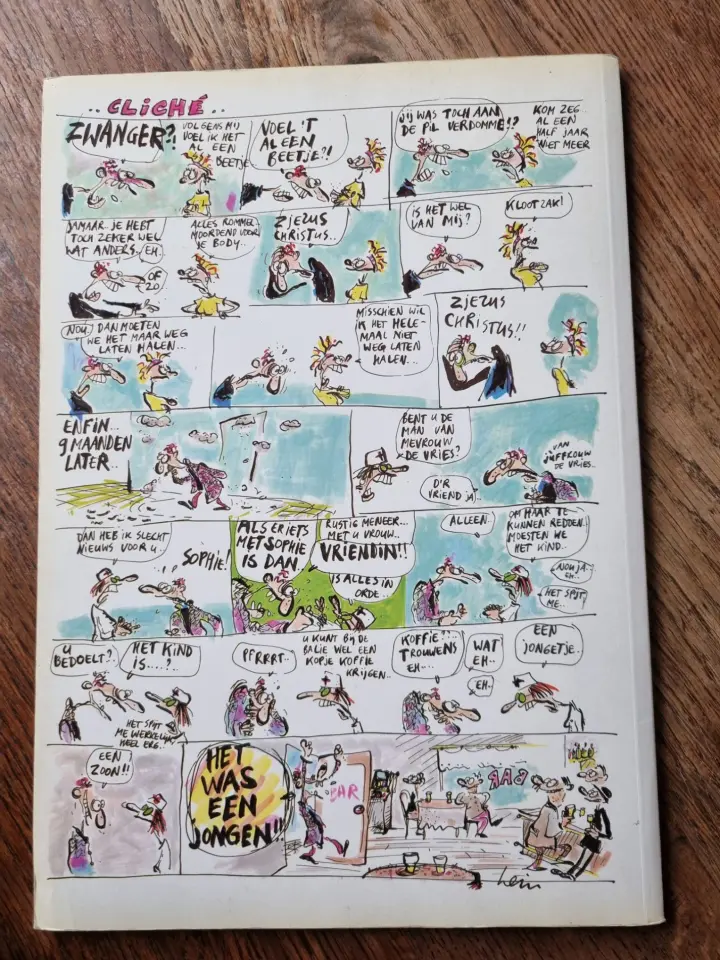 .. CLiCHÉ ..
ZWANGER?!
VOLGENS MIJ
VOEL IK HET
AL EEN
BEETJE
VOEL 'T
AL EEN
BEETJE?!
JIJ WAS TOCH AAN
DE PIL VERDOMME!?
KOM ZEG..
AL EEN
HALF JAAR
NIET MEER
JAMAAR JE HEBT
TOCH ZEKER WEL
WAT ANDERS..
EH..
OF
ZO
ALLES ROMMEL..
MOORDEND VOOR
JE BODY..
ZJEZUS
CHRISTUS..
IS HET WEL
VAN MIJ?
KLOOTZAK!
NOU.. DAN MOETEN
WE HET MAAR WEG
LATEN HALEN...
MISSCHIEN WIL
IK HET HELE-
MAAL NIET
WEG LATEN
HALEN..
ZJEZUS
CHRISTUS!!
ENFIN...
9 MAANDEN
LATER..
BENT U DE
MAN VAN
MEVROUW
DE VRIES?
D'R
VRIEND JA..
VAN
JUFFROUW
DE VRIES..
DAN HEB IK SLECHT
NIEUWS VOOR U..
SOPHIE!
ALS ER IETS
MET SOPHIE
IS DAN..
RUSTIG MENEER...
MET U VROUW..
VRIENDIN!!
IS ALLES IN
ORDE..
ALLEEN..
OM HAAR TE
KUNNEN REDDEN
MOESTEN WE
HET KIND..
NOU JA
EH..
HET SPIJT
ME..
U
BEDOELT?
HET KIND
IS....?
HET SPIJT
ME WERKELIJK
HEEL ERG..
PFRRRT..
U KUNT BIJ DE
BALIE WEL EEN
KOPJE KOFFIE
KRIJGEN..
KOFFIE?...
TROUWENS
EH...
WAT
EH..
EH..
EEN
JONGETJE..
EEN
ZOON!!
HET
WAS
EEN
JONGEN!!
BAR
BAR
hein